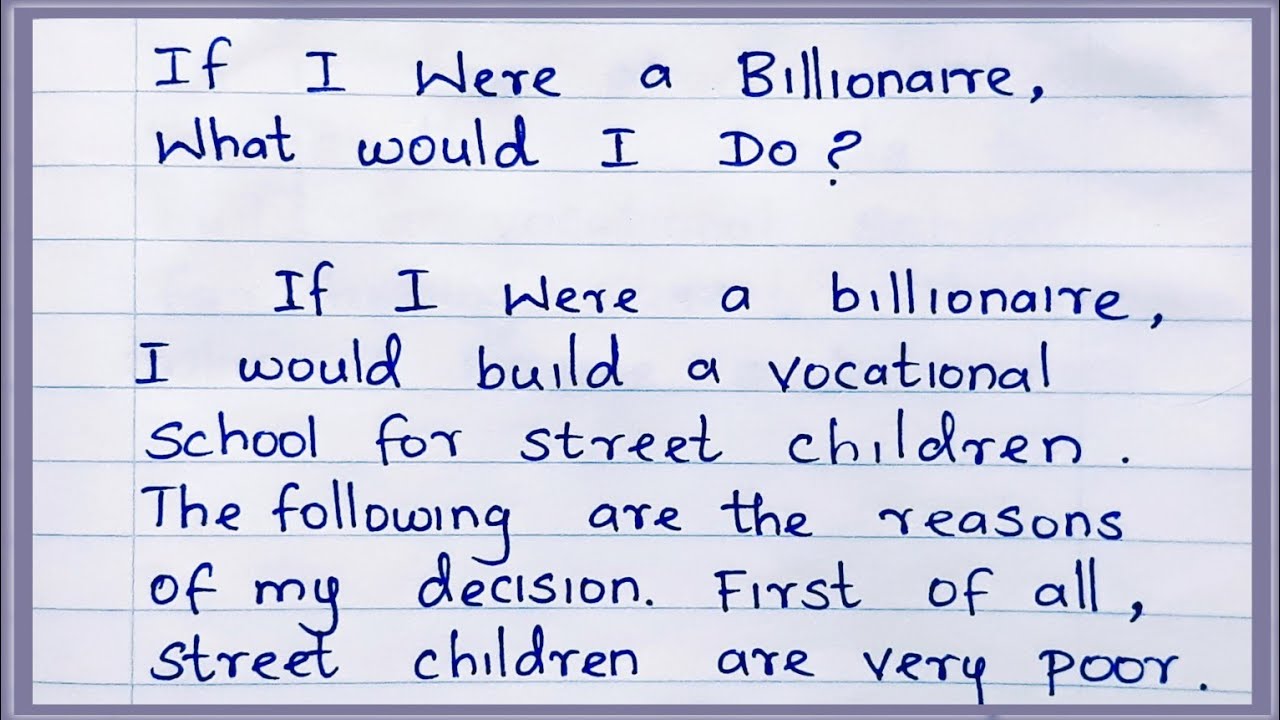 If I Were a Billionaire,
What would I Do?
If I were a billionaire,
I would build a vocational
school for street children.
The following are the reasons
of my decision. First of all,
street children are very poor.